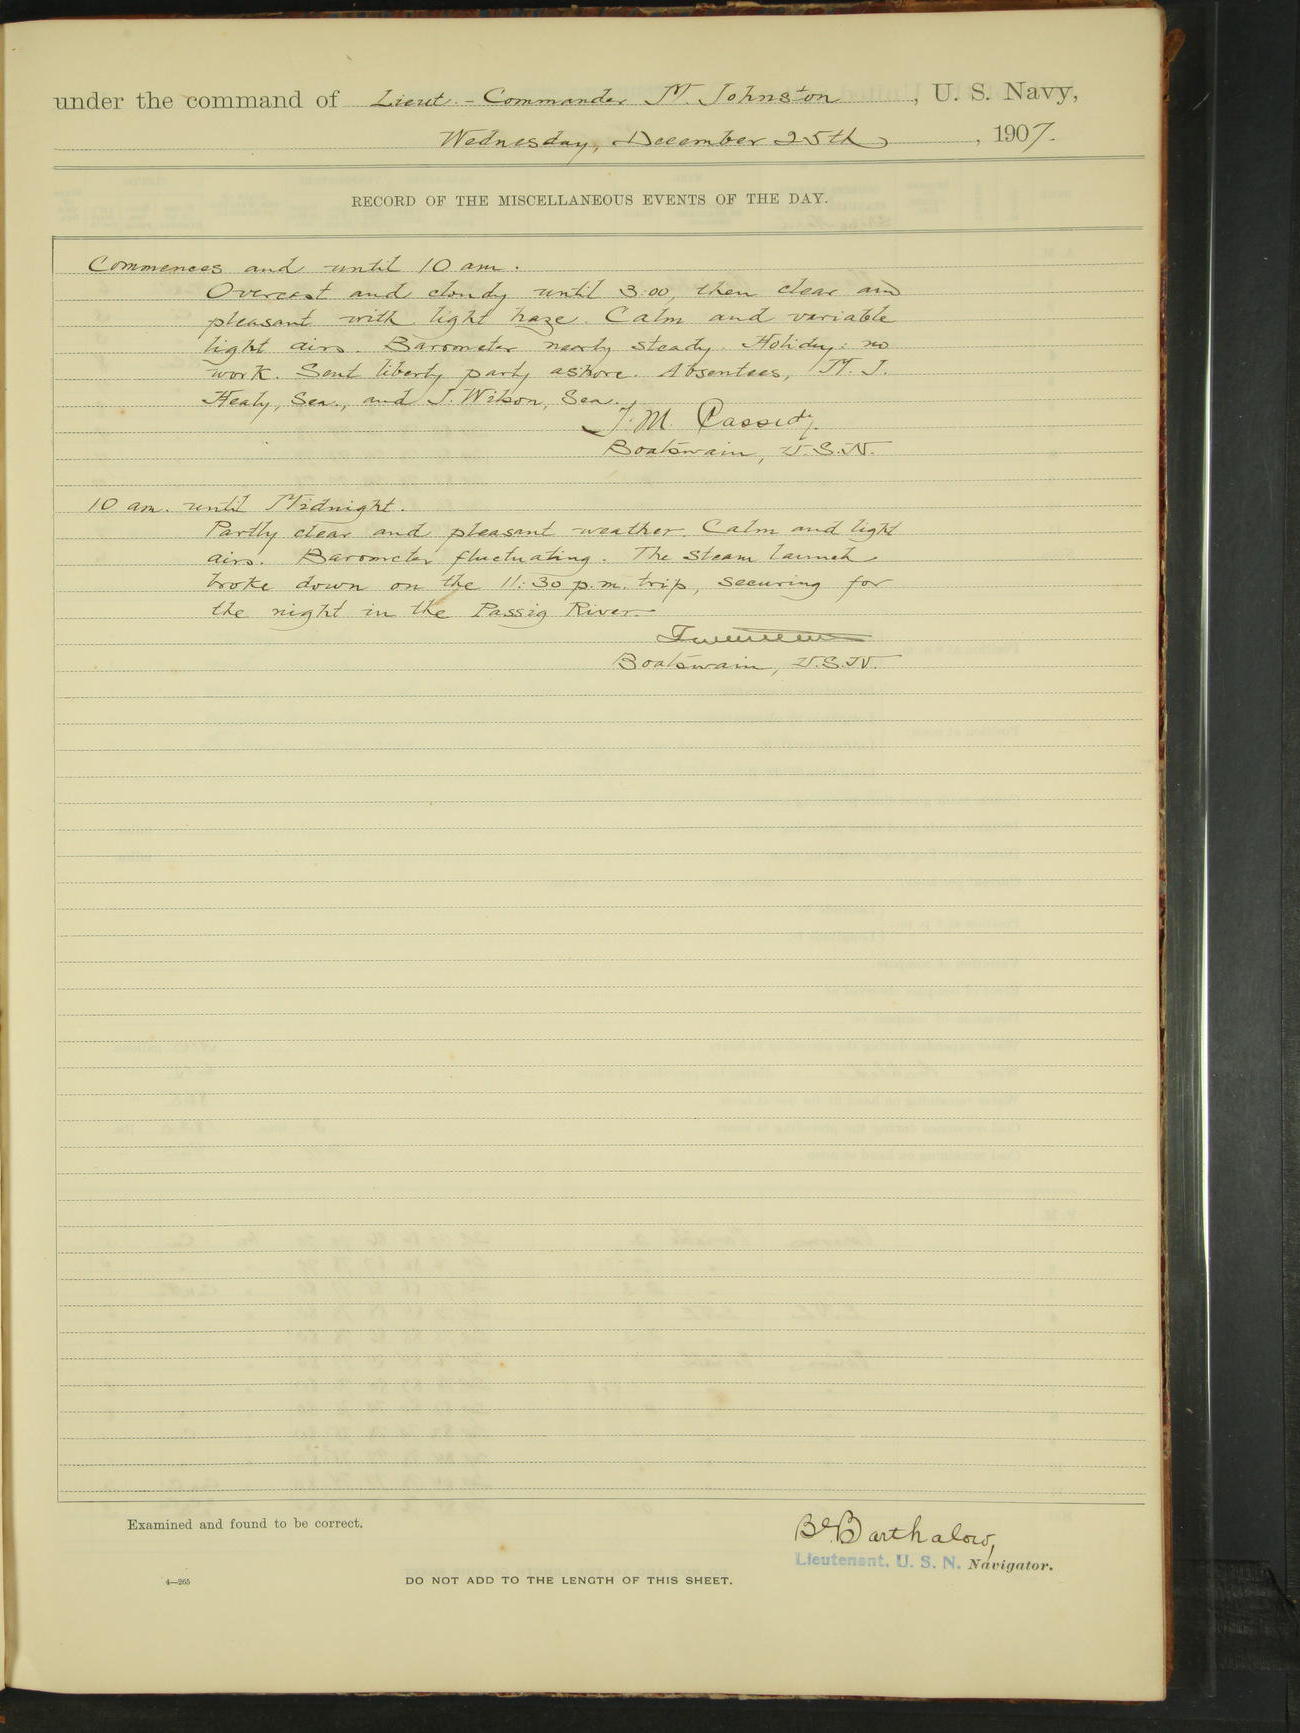 under the command of Lieut.-Commander M. Johnston, U. S. Navy,
Wednesday, December 25th, 1907.
RECORD OF THE MISCELLANEOUS EVENTS OF THE DAY.
Commences and until 10 am.
Overcast and cloudy until 3:00, then clear and
pleasant with light haze. Calm and variable
light airs. Barometer nearly steady. Holiday: no
work. Sent liberty party ashore. Absentees, M. J.
Healy, Sea., and J. Wilson, Sea.
J. M. Cassidy.
Boatswain, U.S.N.
10 am. until Midnight.
Partly clear and pleasant weather. Calm and light
airs. Barometer fluctuating. The steam launch
broke down on the 11:30 p.m. trip, securing for
the night in the Passig River.
Boatswain, U.S.N.
Examined and found to be correct.
Barthalow,
Lieutenant, U. S. N. Navigator.
4—265
DO NOT ADD TO THE LENGTH OF THIS SHEET.